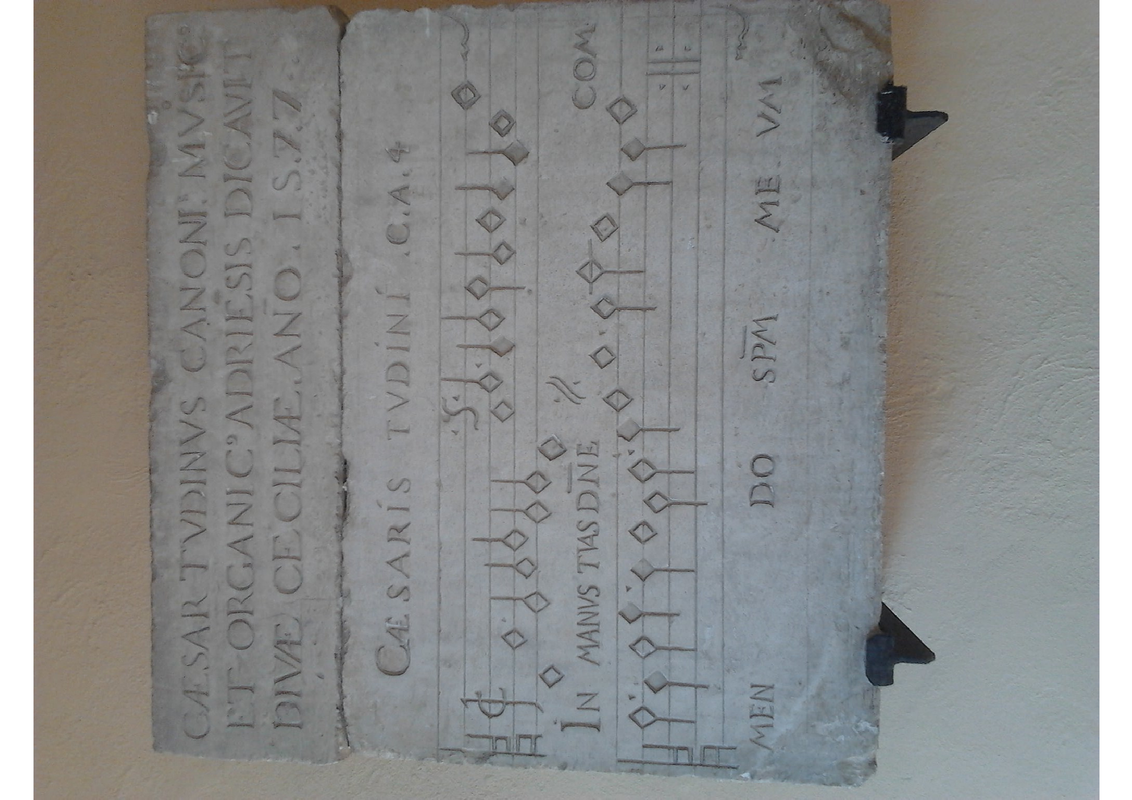 CÆSAR TVDINVS CANONI. MVSIC⁹
ET ORGANIC⁹ ADRIĒSIS DICAVIT
DIVÆ CECILIÆ. AÑO. 1577
CÆSARIS TVDINI .C.A.4
IN MANVS TVAS DÑE //. COM
MEN DO SP̄M ME VM